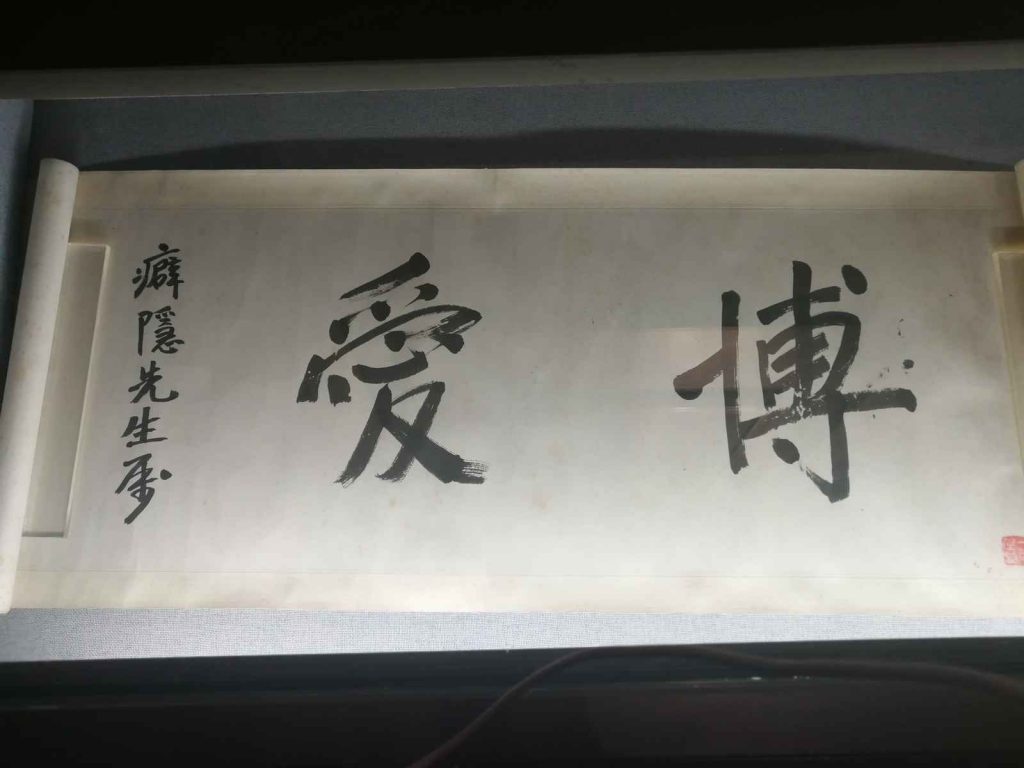 博愛
癖隱先生屬